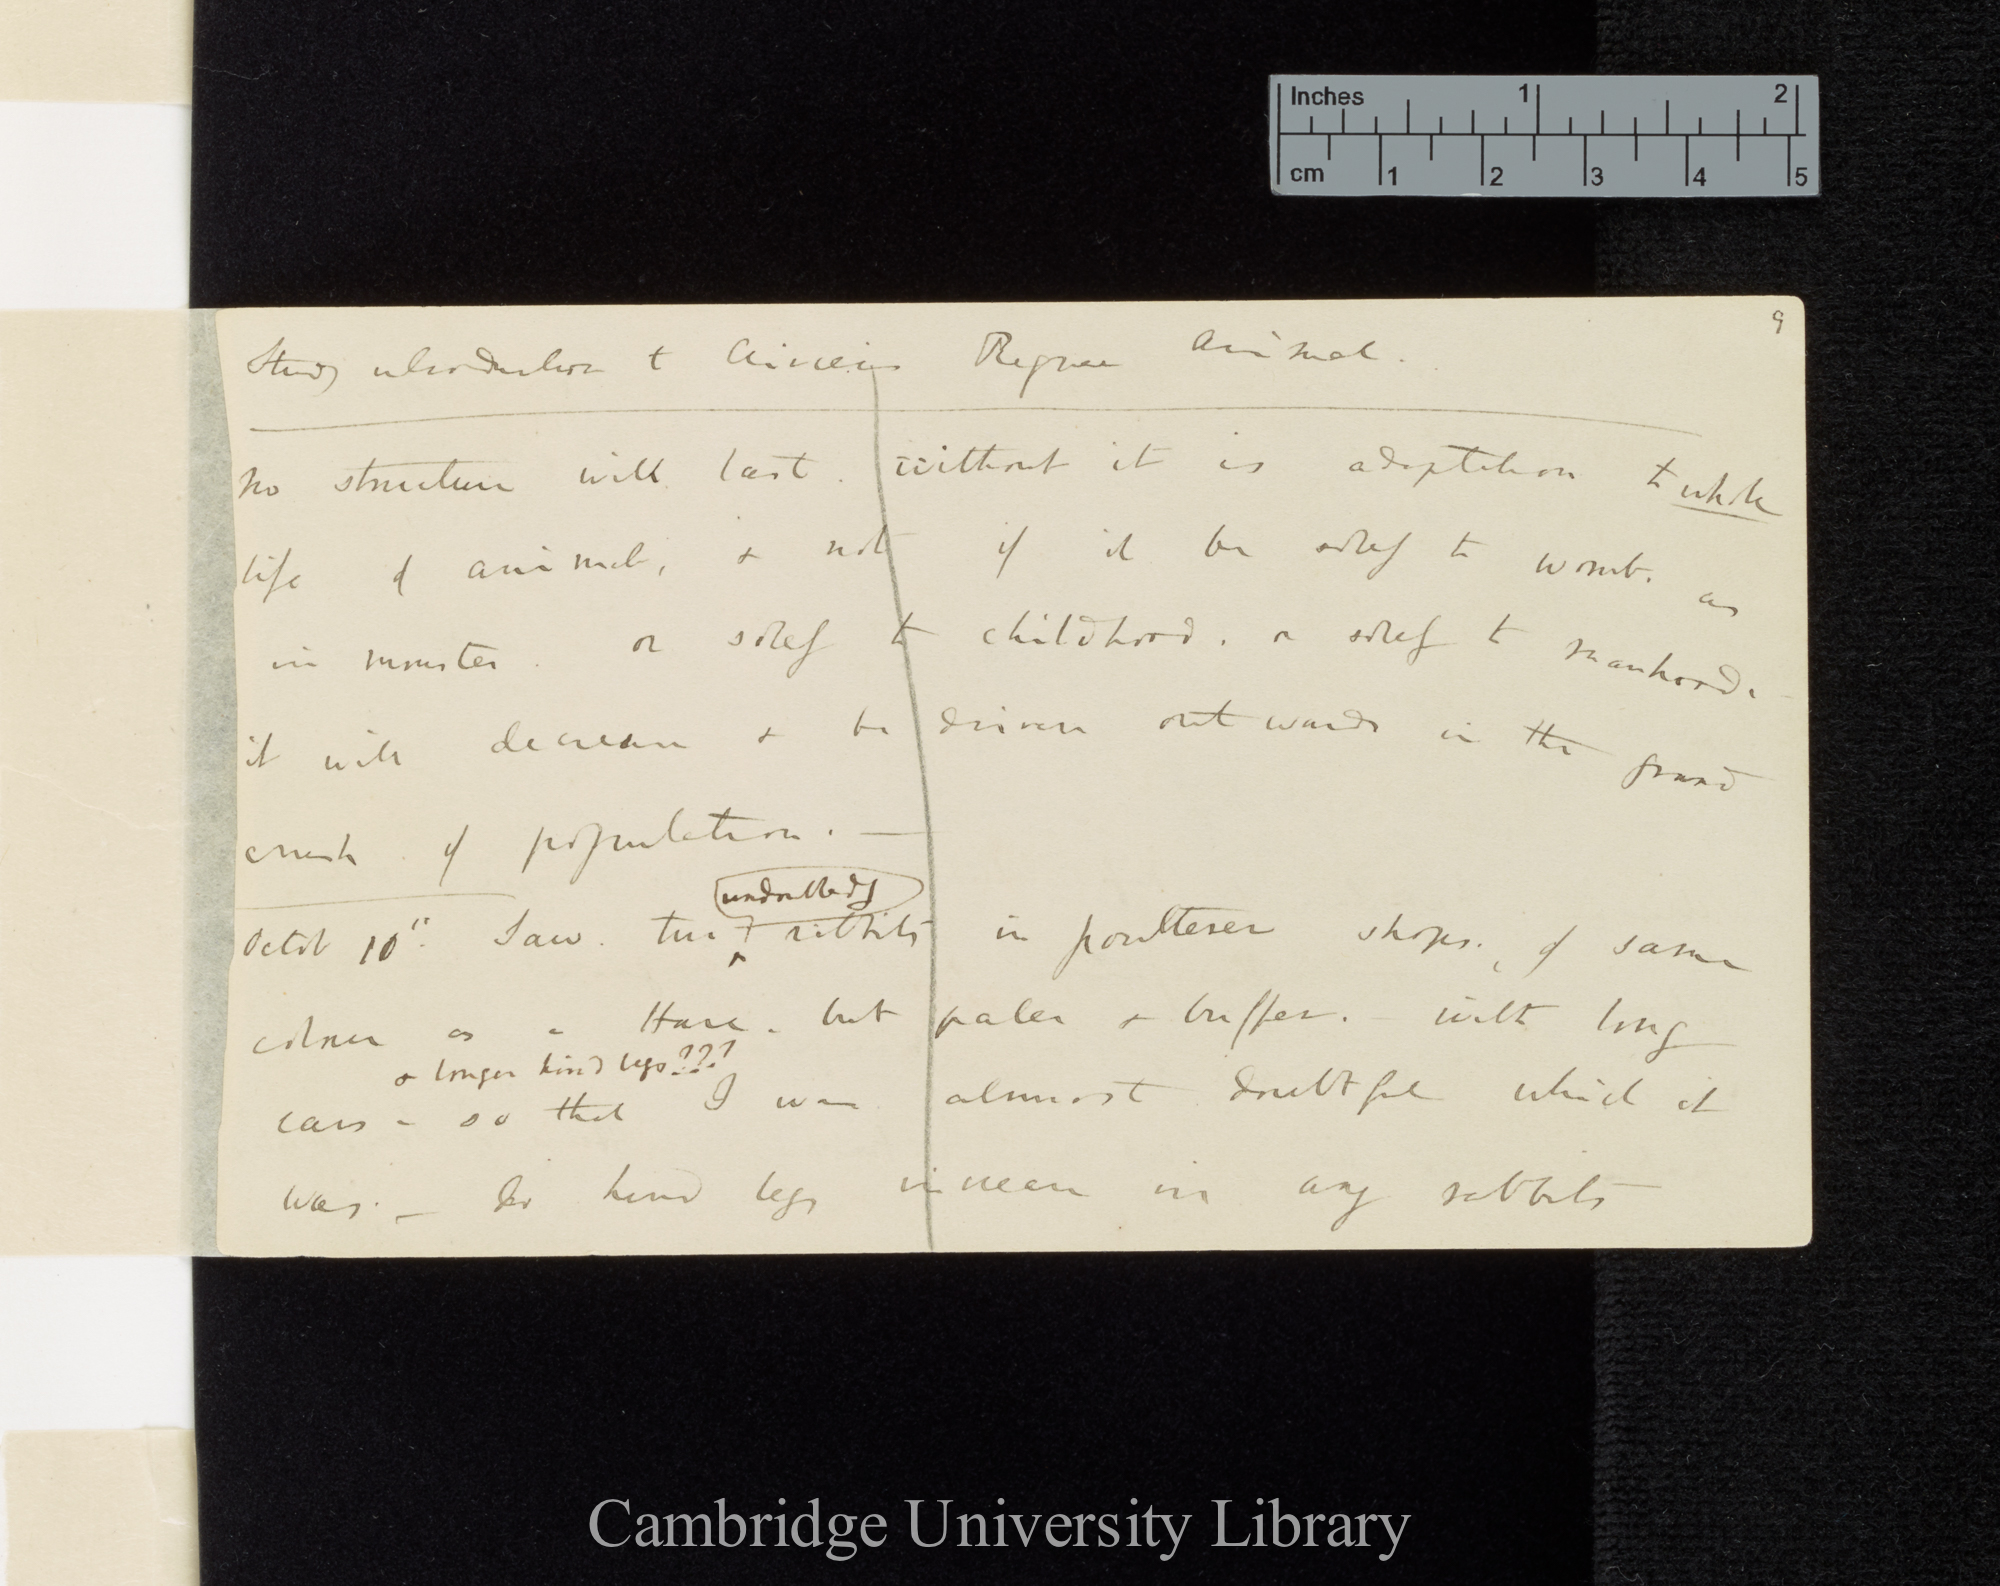 Inches 1 2
cm 1 2 3 4 5
9
Study introduction to Cuvier's Regne Animal.
No structure will last. without it is adaptation to whole
life of animal, & not if it be solely to womb. as
in monster. or solely to childhood. or solely to manhood.
it will decrease & be driven outwards in the grand
crush of population. —
undoubtedly
Octob 10th. Saw. two rabbits in poulterer shops. of same
colour as a Hare. but paler & buffer. — with long
& longer hind legs???
ears - so that I was almost doubtful which it
was. — Do hind legs increase in any rabbits
Cambridge University Library